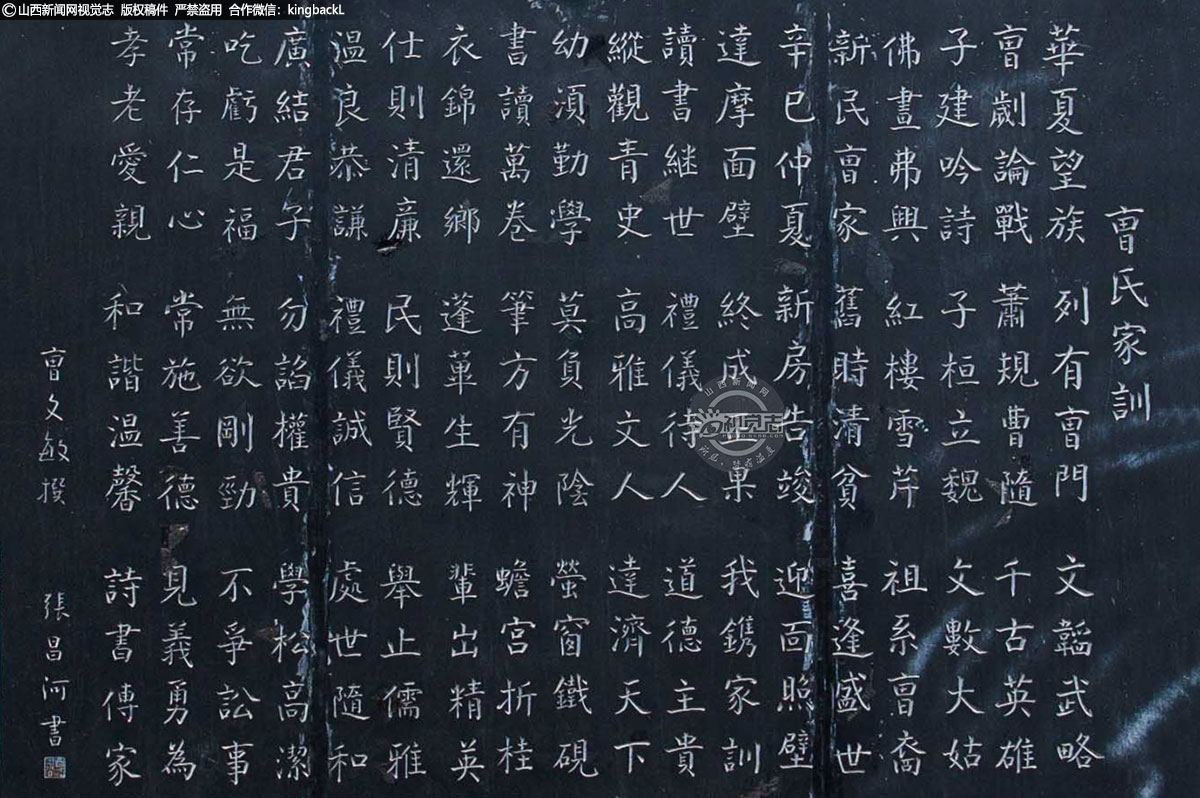 ©山西新闻网视觉志 版权稿件 严禁盗用 合作微信：kingbackL
曺氏家訓
華夏望族 列有曺門 文韜武略
曺劌論戰 蕭規曹隨 千古英雄
子建吟詩 子桓立魏 文數大姑
佛畫弗興 紅樓雪芹 祖系曺裔
新民曺家 舊時清貧 喜逢盛世
辛巳仲夏 新房告竣 迎面照壁
達摩面壁 終成正果 我鐫家訓
讀書継世 禮儀待人 道德主貴
縱觀青史 高雅文人 達濟天下
幼須勤學 莫負光陰 螢窗鐵硯
書讀萬卷 筆方有神 蟾宮折桂
衣錦還鄉 蓬蓽生輝 輩出精英
仕則清廉 民則賢德 舉止儒雅
溫良恭謙 禮儀誠信 處世隨和
廣結君子 勿諂權貴 學松高潔
吃虧是福 無欲剛勁 不爭訟事
常存仁心 常施善德 見義勇為
孝老愛親 和諧溫馨 詩書傳家
曺文敏撰 張昌河書
山西新闻网
视觉志